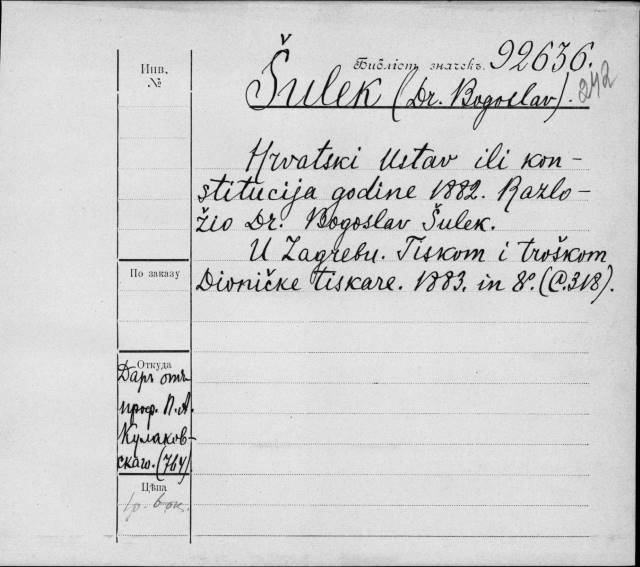 Библіот. значекъ. 92636.
Šulek (Dr. Bogoslav). 242
Hrvatski Ustav ili kon-
stitucija godine 1882. Razlo-
žio Dr. Bogoslav Šulek.
U Zagrebu. Tiskom i troškom
Dioničke tiskare. 1883. in 8º. (C. 318).
Инв.
№
По заказу
Откуда
Даръ отъ
проф. П. А.
Кулаков-
скаго. (764)
Цѣна